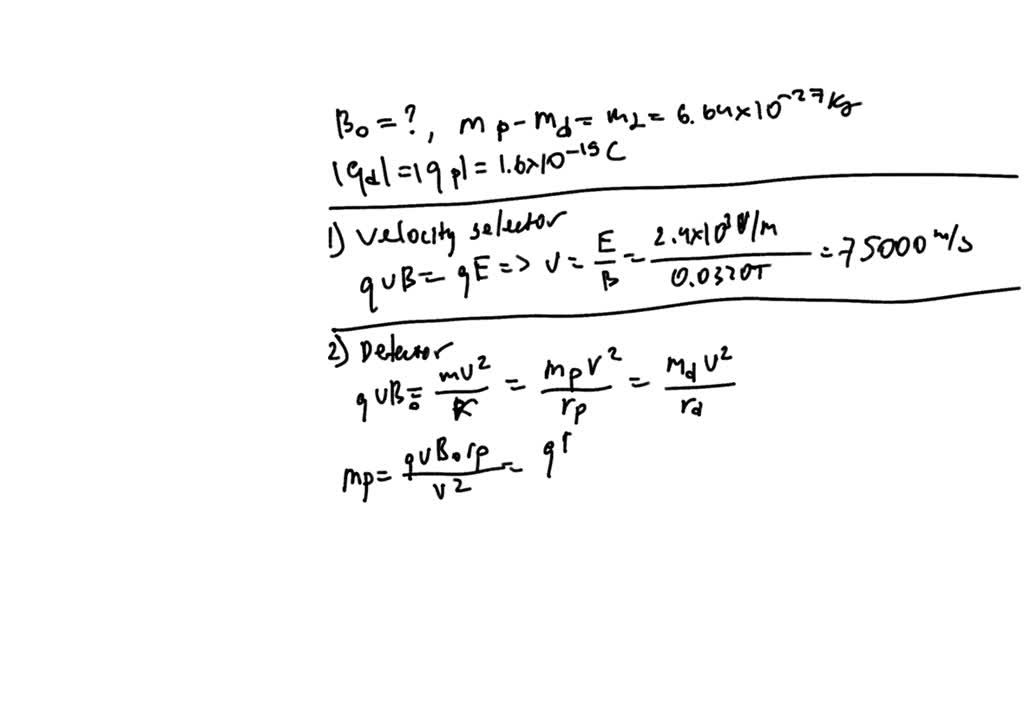 B₀ = ?, m p - m d = m α = 6.64×10⁻²⁷ kg
|q d| = |q p| = 1.6×10⁻¹⁹ C
1) Velocity selector
qvB = qE => v = E/B = 2.4×10³ V/m / 0.0320T = 75000 m/s
2) Detector
qvB₀ = mv²/R = m p v²/r p = m d v²/r d
mp = qvB₀rp/v² = qr